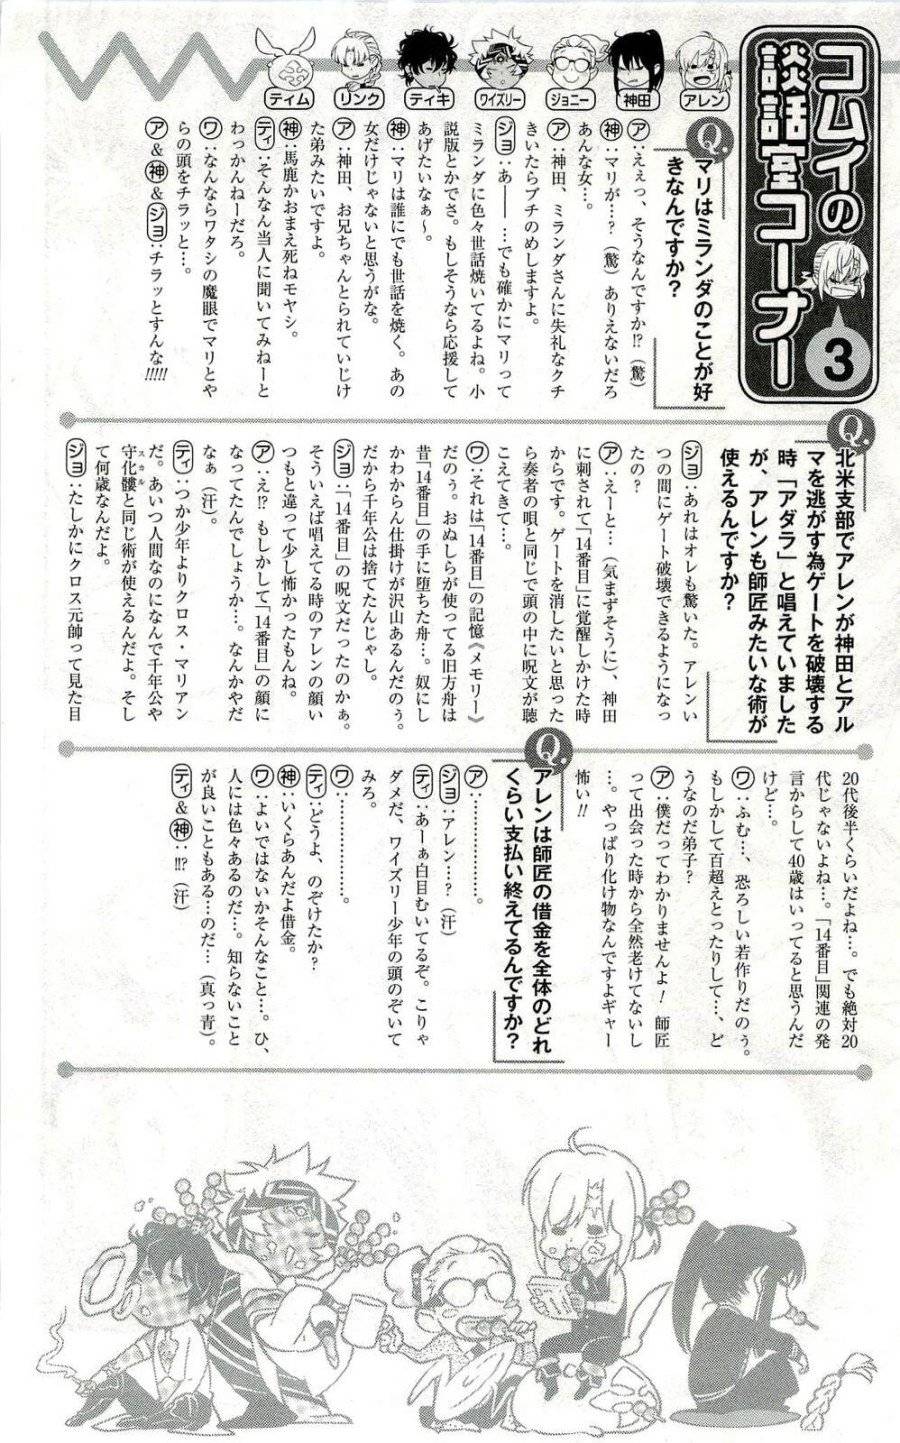 コムイの
談話室コーナー
3
アレン
神田
ジョニー
ワイズリー
ティキ
リンク
ティム
Q.
マリはミランダのことが好
きなんですか?
ア:ええっ、そうなんですか!?(驚)
神:マリが…?(驚)ありえないだろ
あんな女…。
ア:神田、ミランダさんに失礼なクチ
きいたらブチのめしますよ。
ジョ:あ――…でも確かにマリって
ミランダに色々世話焼いてるよね。小
説版とかでさ。もしそうなら応援して
あげたいなぁ〜。
神:マリは誰にでも世話を焼く。あの
女だけじゃないと思うがな。
ア:神田、お兄ちゃんとられていじけ
た弟みたいですよ。
神:馬鹿かおまえ死ねモヤシ。
ティ:そんなん当人に聞いてみねーと
わっかんねーだろ。
ワ:なんならワタシの魔眼でマリとや
らの頭をチラッと…。
ア&神&ジョ:チラッとすんな!!!!!
Q.
北米支部でアレンが神田とアル
マを逃がす為ゲートを破壊する
時「アダラ」と唱えていました
が、アレンも師匠みたいな術が
使えるんですか?
ジョ:あれはオレも驚いた。アレンい
つの間にゲート破壊できるようになっ
たの?
ア:えーと…(気まずそうに)、神田
に刺されて「14番目」に覚醒しかけた時
からです。ゲートを消したいと思った
ら奏者の唄と同じで頭の中に呪文が聴
こえてきて…。
ワ:それは「14番目」の記憶《メモリー》
だのぅ。おぬしらが使ってる旧方舟は
昔「14番目」の手に堕ちた舟…。奴にし
かわからん仕掛けが沢山あるんだのぅ。
だから千年公は捨てたんじゃし。
ジョ:「14番目」の呪文だったのかぁ。
そういえば唱えてる時のアレンの顔い
つもと違って少し怖かったもんね。
ア:え!?もしかして「14番目」の顔に
なってたんでしょうか…。なんかやだ
なぁ(汗)。
ティ:つか少年よりクロス・マリアン
だ。あいつ人間なのになんで千年公や
守化髏と同じ術が使えるんだよ。そし
スカル
て何歳なんだよ。
ジョ:たしかにクロス元帥って見た目
20代後半くらいだよね…。でも絶対20
代じゃないよね…。「14番目」関連の発
言からして40歳はいってると思うんだ
けど…。
ワ:ふむ…、恐ろしい若作りだのぅ。
もしかして百超えとったりして…、ど
うなのだ弟子?
ア:僕だってわかりませんよ!師匠
って出会った時から全然老けてないし
…。やっぱり化け物なんですよギャー
怖い!!
Q.
アレンは師匠の借金を全体のどれ
くらい支払い終えてるんですか?
ア:………………。
ジョ:アレン…?(汗)
ティ:あーぁ白目むいてるぞ。こりゃ
ダメだ、ワイズリー少年の頭のぞいて
みろ。
ワ:………………。
ティ:どうよ、のぞけたか?
神:いくらあんだよ借金。
ワ:よいではないかそんなこと…。ひ、
人には色々あるのだ…。知らないこと
が良いこともある…のだ…(真っ青)。
ティ&神:!!?(汗)